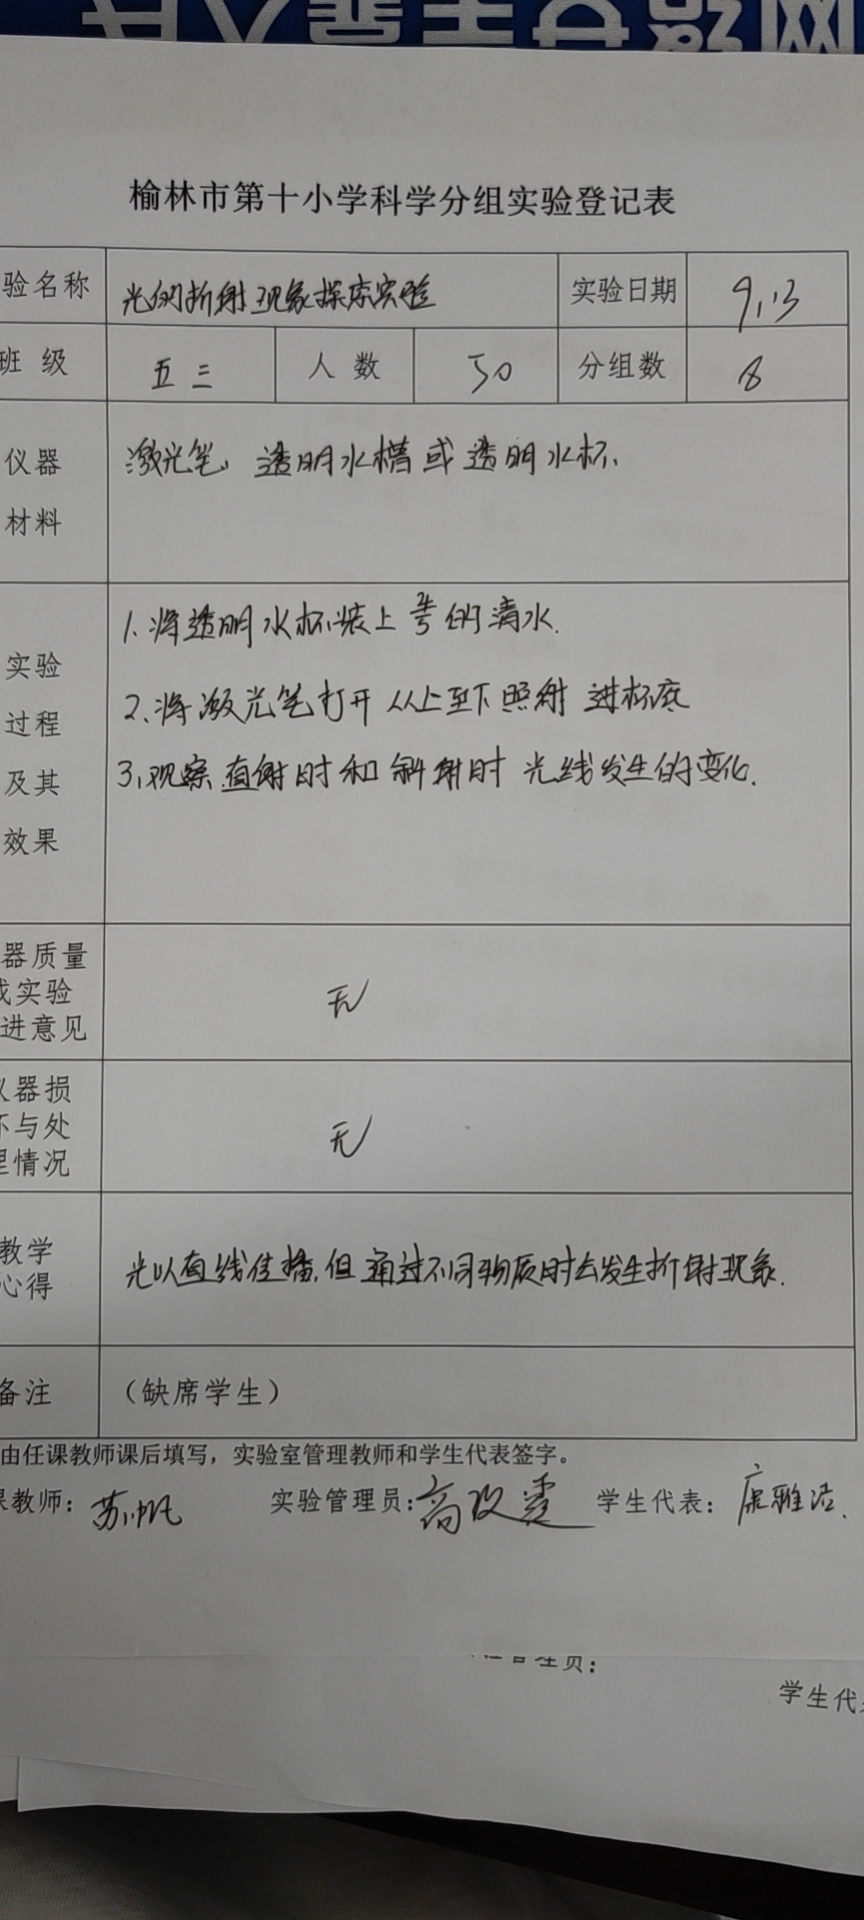 网络安全靠人民
榆林市第十小学科学分组实验登记表
验名称 光的折射现象探索实验 实验日期 9.13
班 级 五三 人 数 50 分组数 8
仪器
材料
激光笔、透明水槽或透明水杯、
实验
过程
及其
效果
1、将透明水杯装上 的清水.
2、将激光笔打开从上至下照射 进杯底
3、观察直射时和斜射时 光线发生的变化.
器质量
或实验
进意见
无
仪器损
坏与处
理情况
无
教学
心得
光以直线传播,但通过不同物质时会发生折射现象.
备注 (缺席学生)
由任课教师课后填写,实验室管理教师和学生代表签字。
课教师: 苏帆 实验管理员: 高改霞 学生代表: 雅洁.
管理员:
学生代